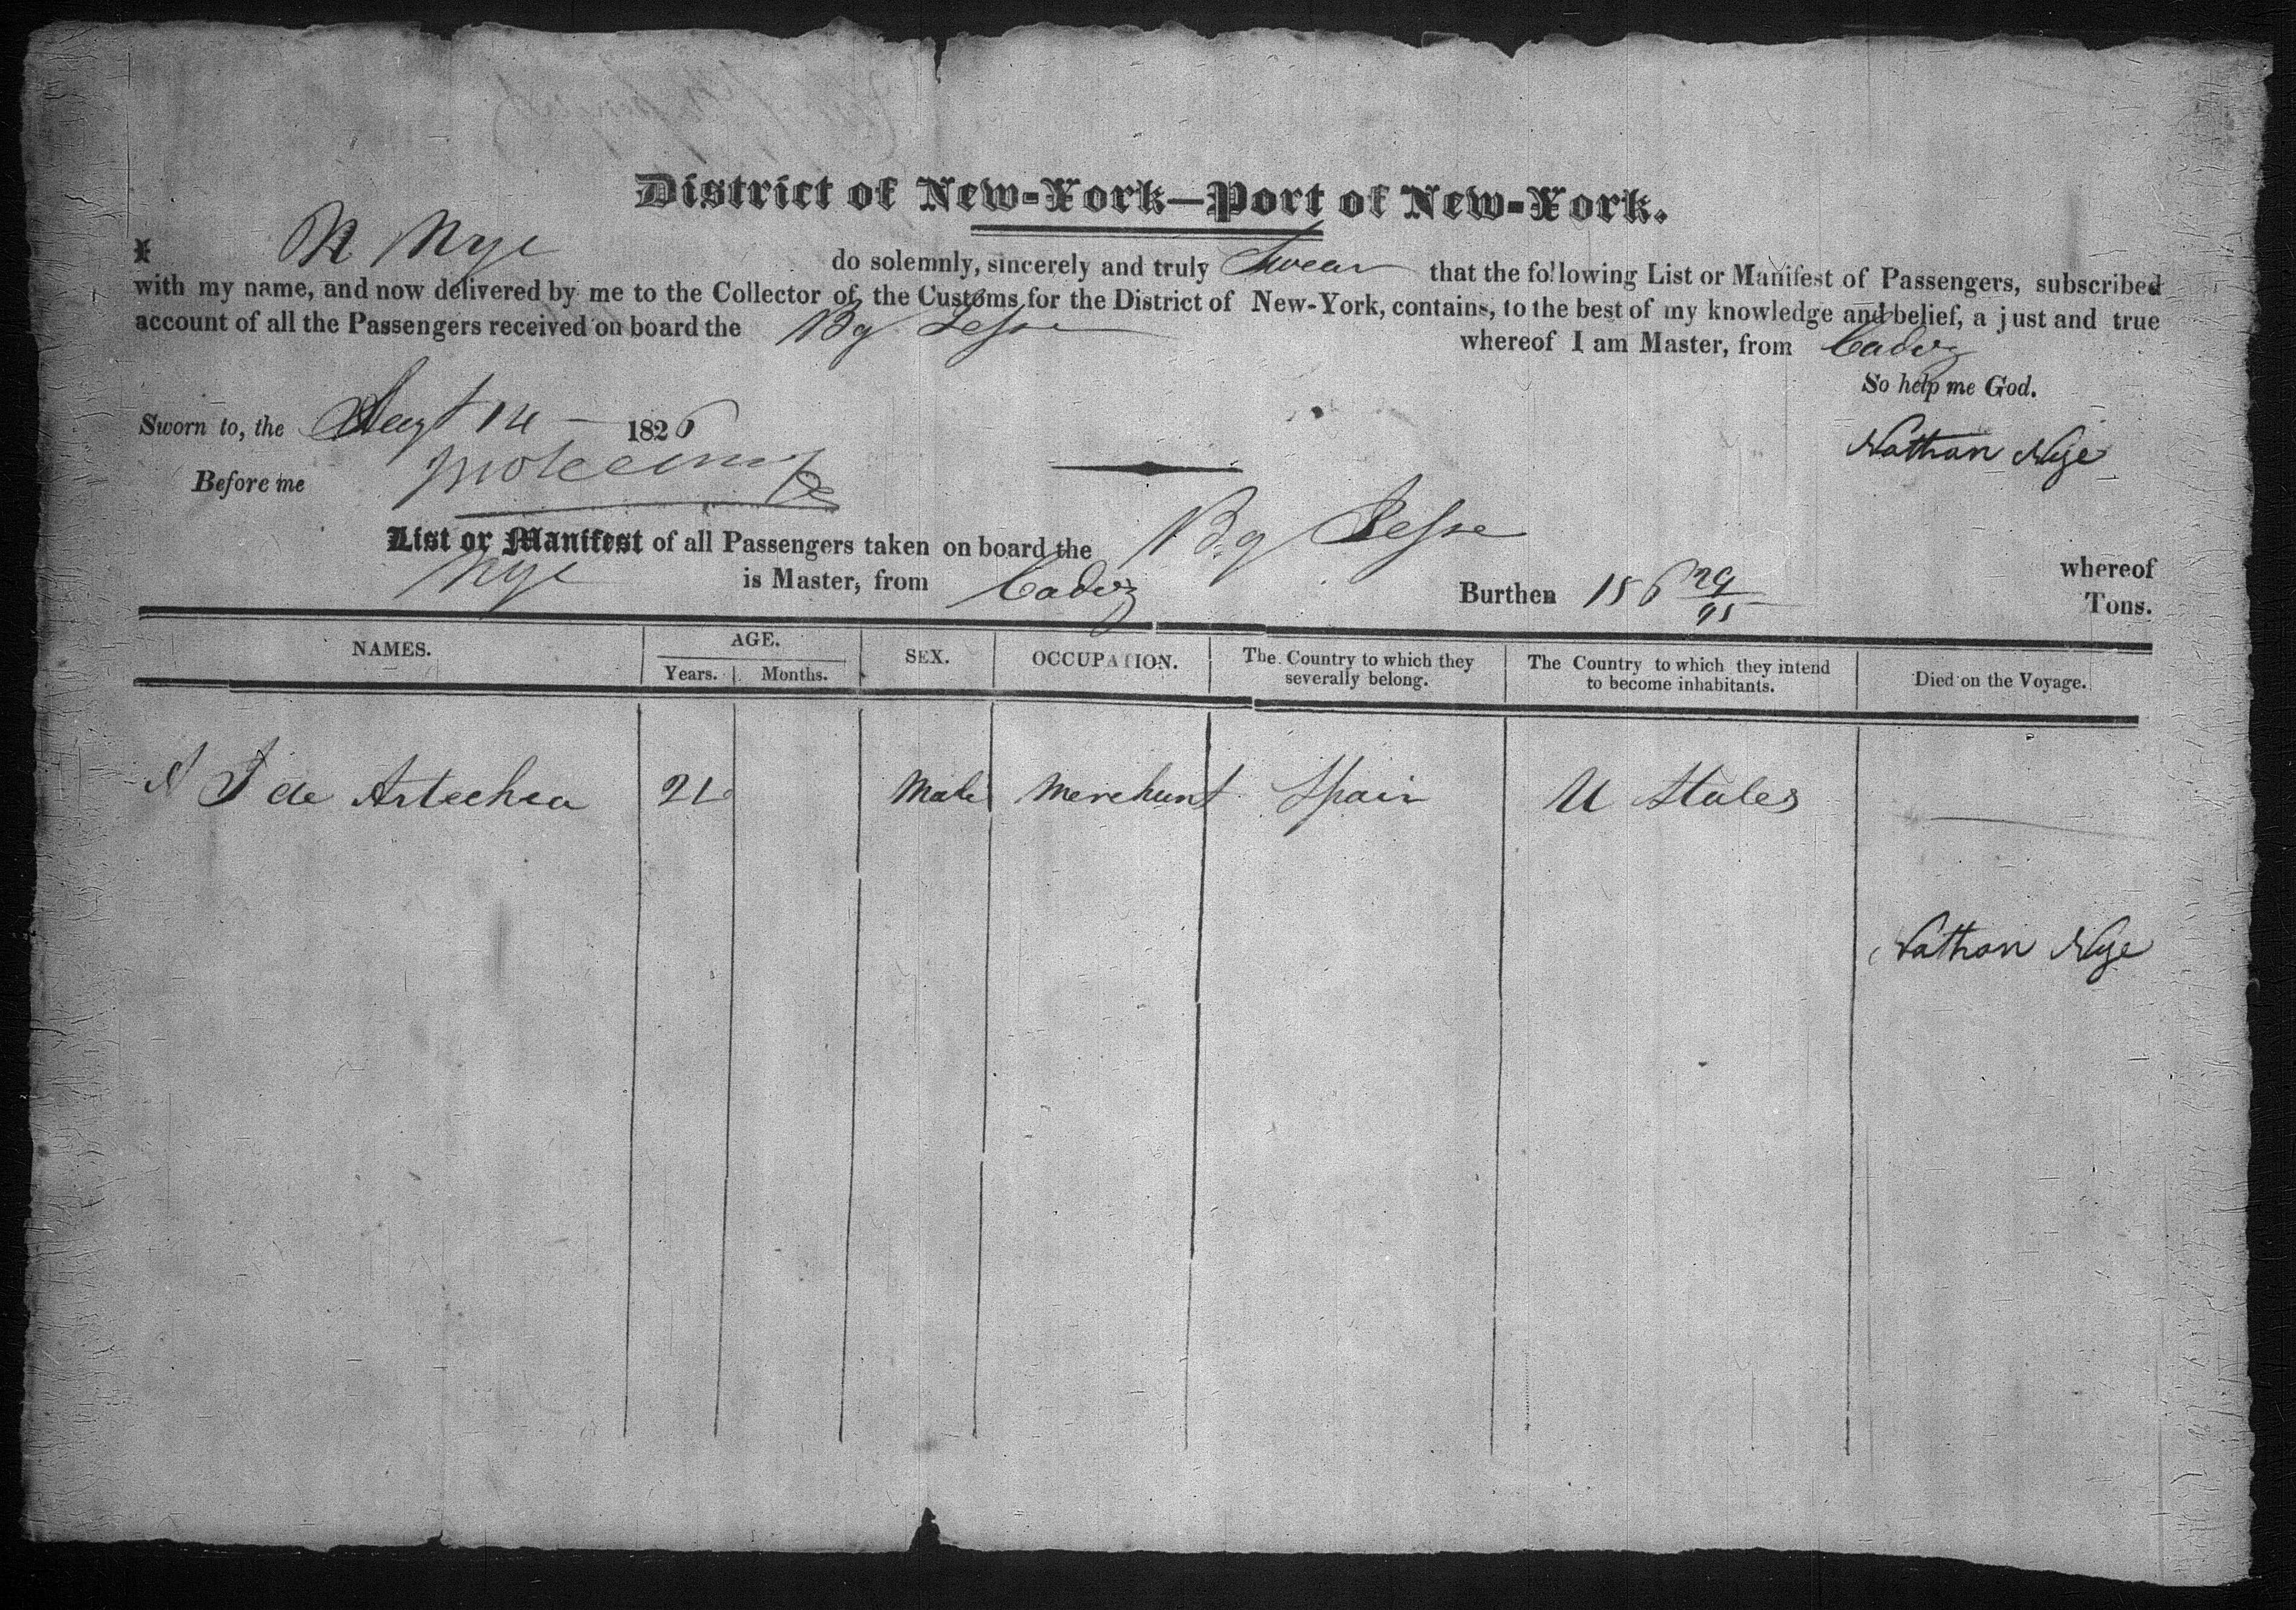 District of New-York—Port of New-York.
I N Nye do solemnly, sincerely and truly Swear that the following List or Manifest of Passengers, subscribed
with my name, and now delivered by me to the Collector of the Customs for the District of New-York, contains, to the best of my knowledge and belief, a just and true
account of all the Passengers received on board the Bg Jesse whereof I am Master, from Cadiz
So help me God.
Sworn to, the Augt 14 1826
Nathan Nye
Before me
List or Manifest of all Passengers taken on board the Bg Jesse whereof
Nye is Master, from Cadiz Burthen 156 29/95 Tons.
NAMES. AGE. SEX. OCCUPATION. The Country to which they severally belong. The Country to which they intend to become inhabitants. Died on the Voyage.
Years. Months.
J de Artechea 21 Male Merchant Spain U States
Nathan Nye